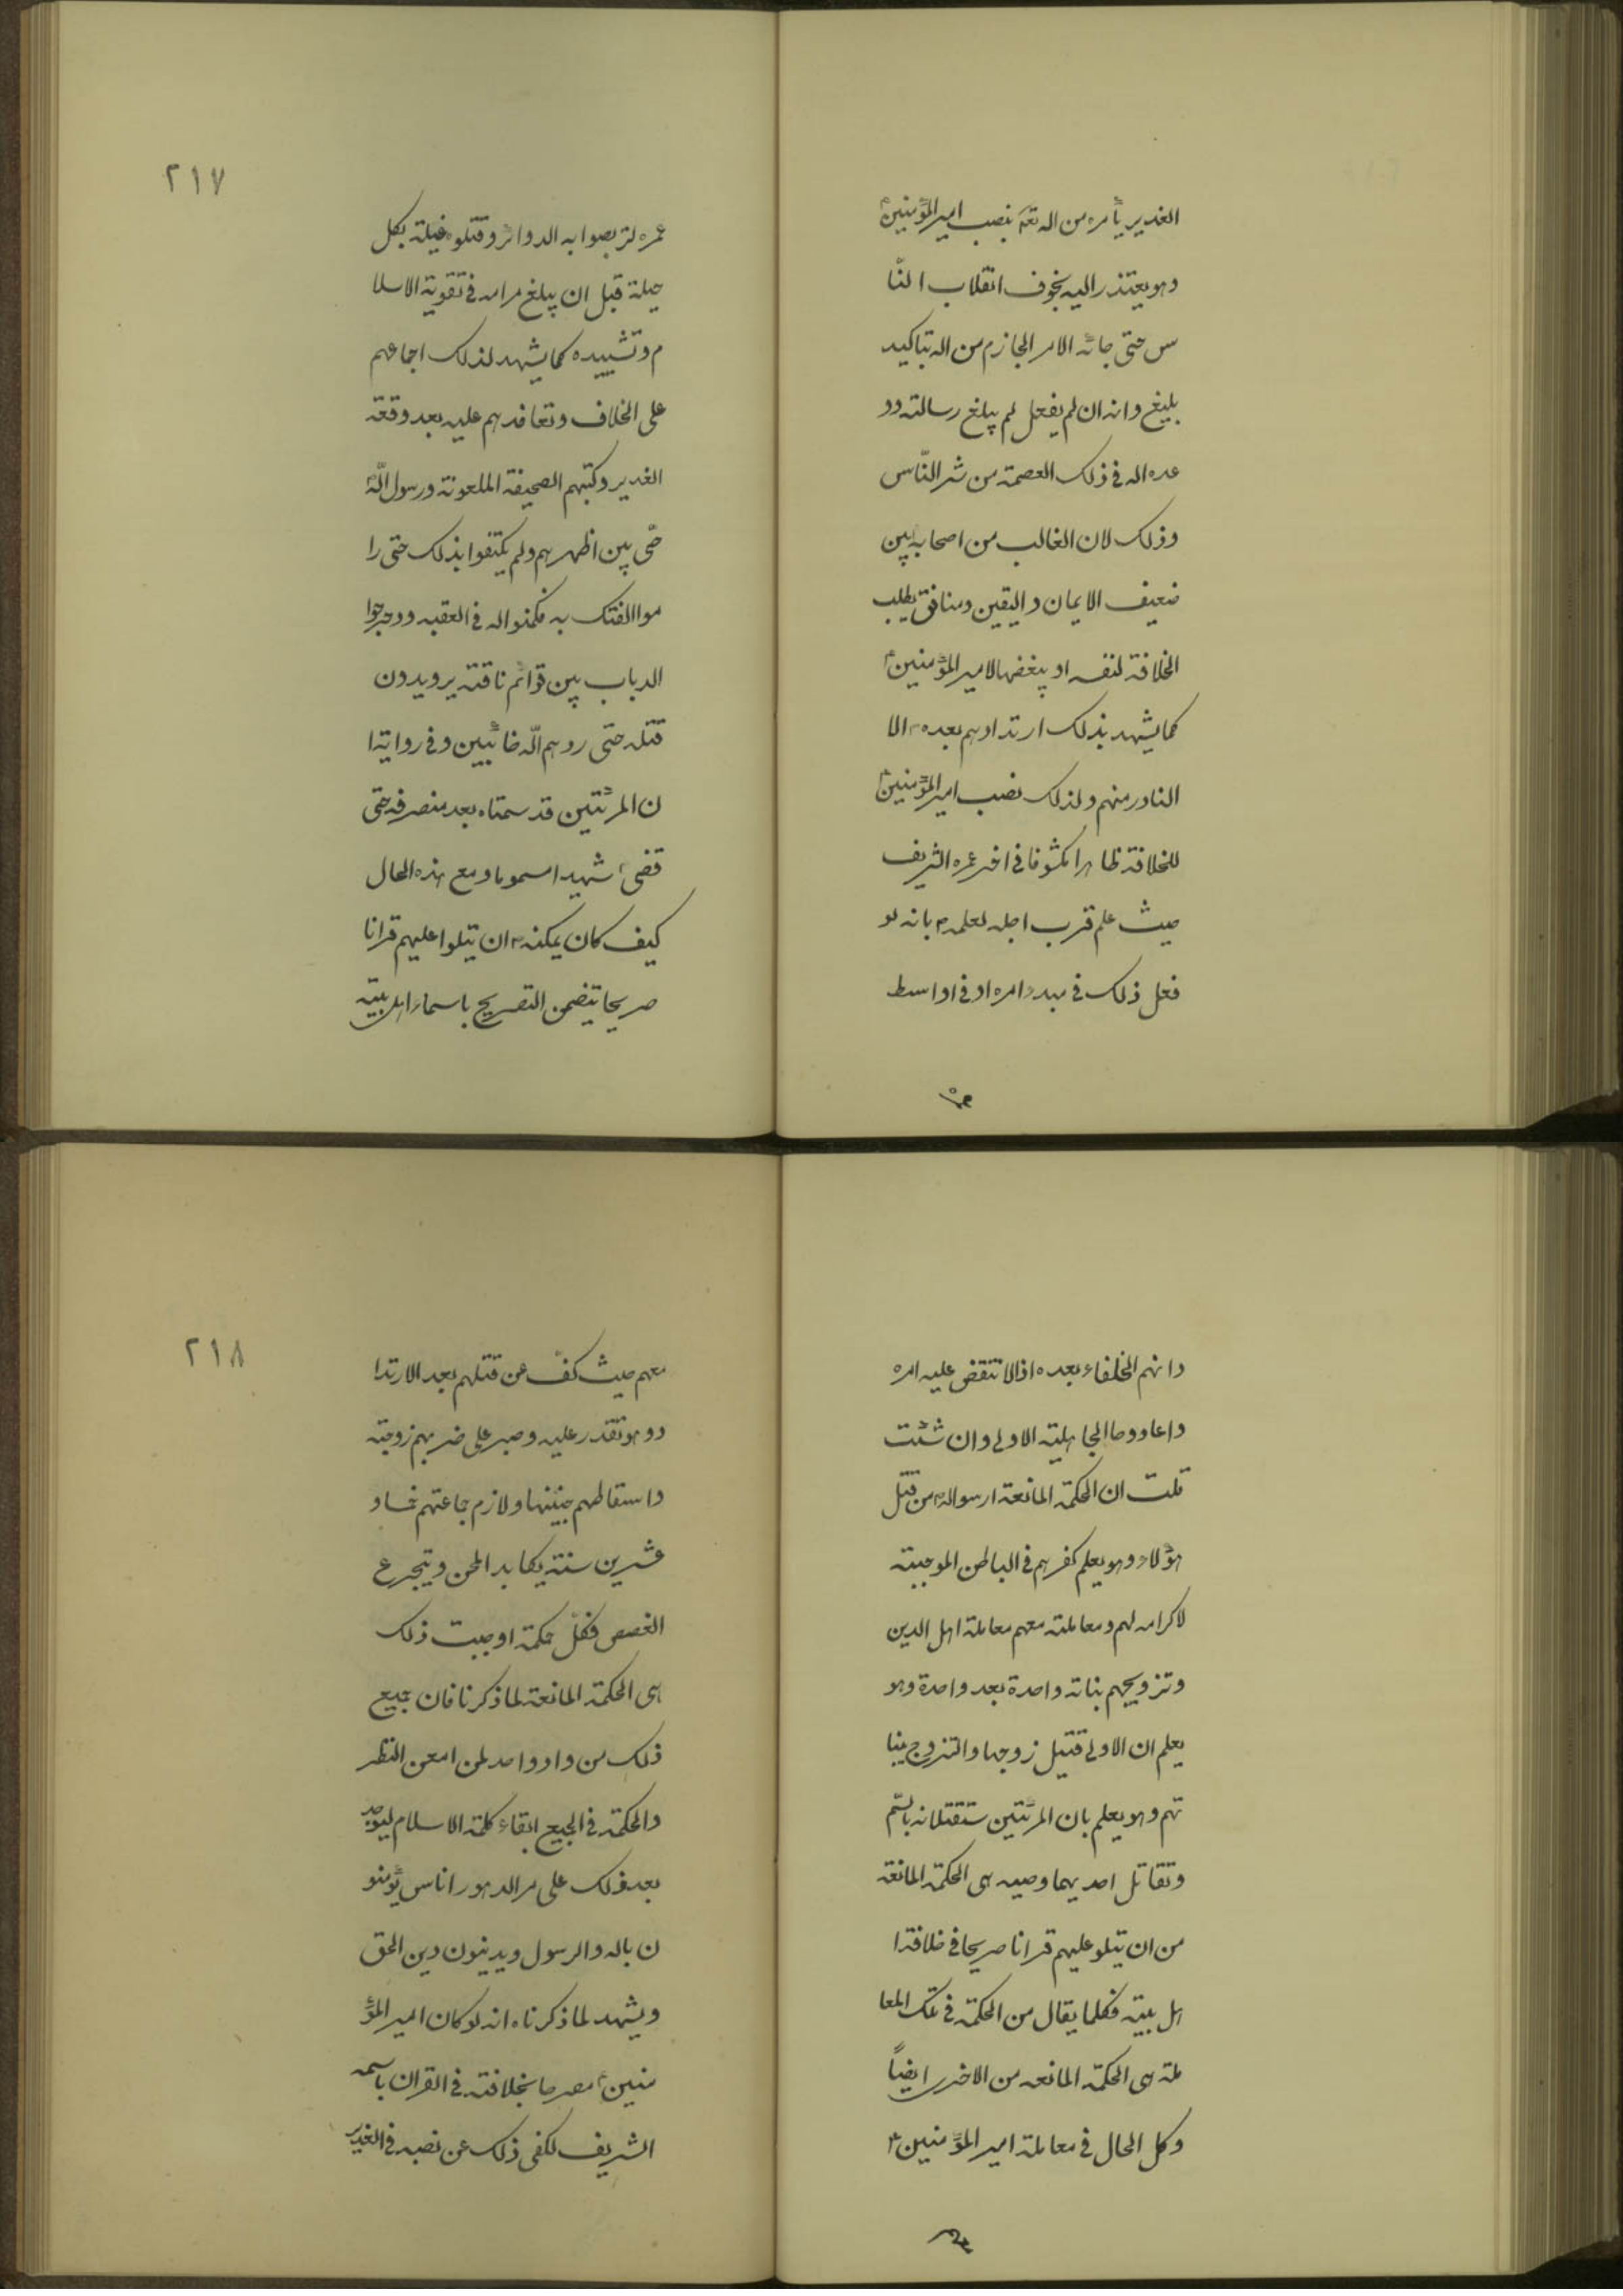 الغدير يأمره من اله تعه بنصب امير المؤمنين ع
وهو يعتذر اليه بخوف انقلاب النّا
س حتى جائه الامر الجازم من اله بتاكيد
بليغ وانه ان لم يفعل لم يبلغ رسالته وو
عده اله في ذلك العصمة من شر النّاس
وذلك لان الغالب من اصحابه بين
ضعيف الايمان واليقين ومنافق يطلب
الخلافة لنفسه او يبغضها لامير المؤمنين ع
كما يشهد بذلك ارتدادهم بعده ص الا
النادر منهم ولذلك نصب امير المؤمنين ع
للخلافة ظاهرا مكشوفا في اخر عمره الشريف
حيث علم قرب اجله لعلمه ص بانه لو
فعل ذلك في مبدء امره او في اواسط
٢١٧
عمره لتربصوا به الدوائر وقتلوه غيلة بكل
حيلة قبل ان يبلغ مرامه في تقوية الاسلا
م وتشييده كما يشهد لذلك اجماعهم
على الخلاف وتعاقدهم عليه بعد وقعة
الغدير وكتبهم الصحيفة الملعونة ورسول اللّه
حّى بين اظهرهم ولم يكتفوا بذلك حتى را
موا الفتك به فكمنوا له في العقبه ودحرجوا
الدباب بين قوائم ناقته يريدون
قتله حتى ردهم اللّه خائبين وفي رواية ا
ن المرئتين قد سمتاه بعد منصرفه حتى
قضى ص شهيدا مسموما ومع هذه الحال
كيف كان يمكنه ص ان يتلوا عليهم قرانا
صريحا يتضمن التصريح باسماء اهل بيته
وانهم الخلفاء بعده اذا لا نتقض عليه امره
واعادوها الجاهلية الاولى وان شئت
قلت ان الحكمة المانعة لرسواله ص من قتل
هؤلاء وهو يعلم كفرهم في الباطن الموجبته
لاكرامه لهم ومعاملته معهم معاملة اهل الدين
وتزويجهم بناته واحدة بعد واحدة وهو
يعلم ان الاولى قتيل زوجها والتزوج ببنا
تهم وهو يعلم بان المرئتين ستقتلانه بالسّم
وتقاتل احديهما وصيه هى الحكمة المانعة
من ان يتلو عليهم قرانا صريحا في خلافة ا
هل بيته فكلما يقال من الحكمة في تلك المعا
ملة هى الحكمة المانعه من الاخر ايضاً
وكل الحال في معاملة امير المؤمنين ع
٢١٨
معهم حيث كفّ عن قتلهم بعد الارتدا
د وهو تقدر عليه وصبر على ضربهم زوجته
واسقاطهم جنينها ولازم جماعتهم خمسا و
عشرين سنة يكابد المحن ويتجرع
الغصص فكلّ حكمة اوجبت ذلك
هى الحكمة المانعة لما ذكرنا فان جميع
ذلك من واد واحد لمن امعن النظر
والحكمة في الجميع ابقاء كلمة الاسلام ليوجد
بعد ذلك على مر الدهور اناس يؤمنو
ن باله والرسول ويدينون دين الحق
ويشهد لما ذكرناه انه لو كان امير المؤ
منين ع مصرحا بخلافته في القران باسمه
الشريف لكفى ذلك عن نصبه في الغدير